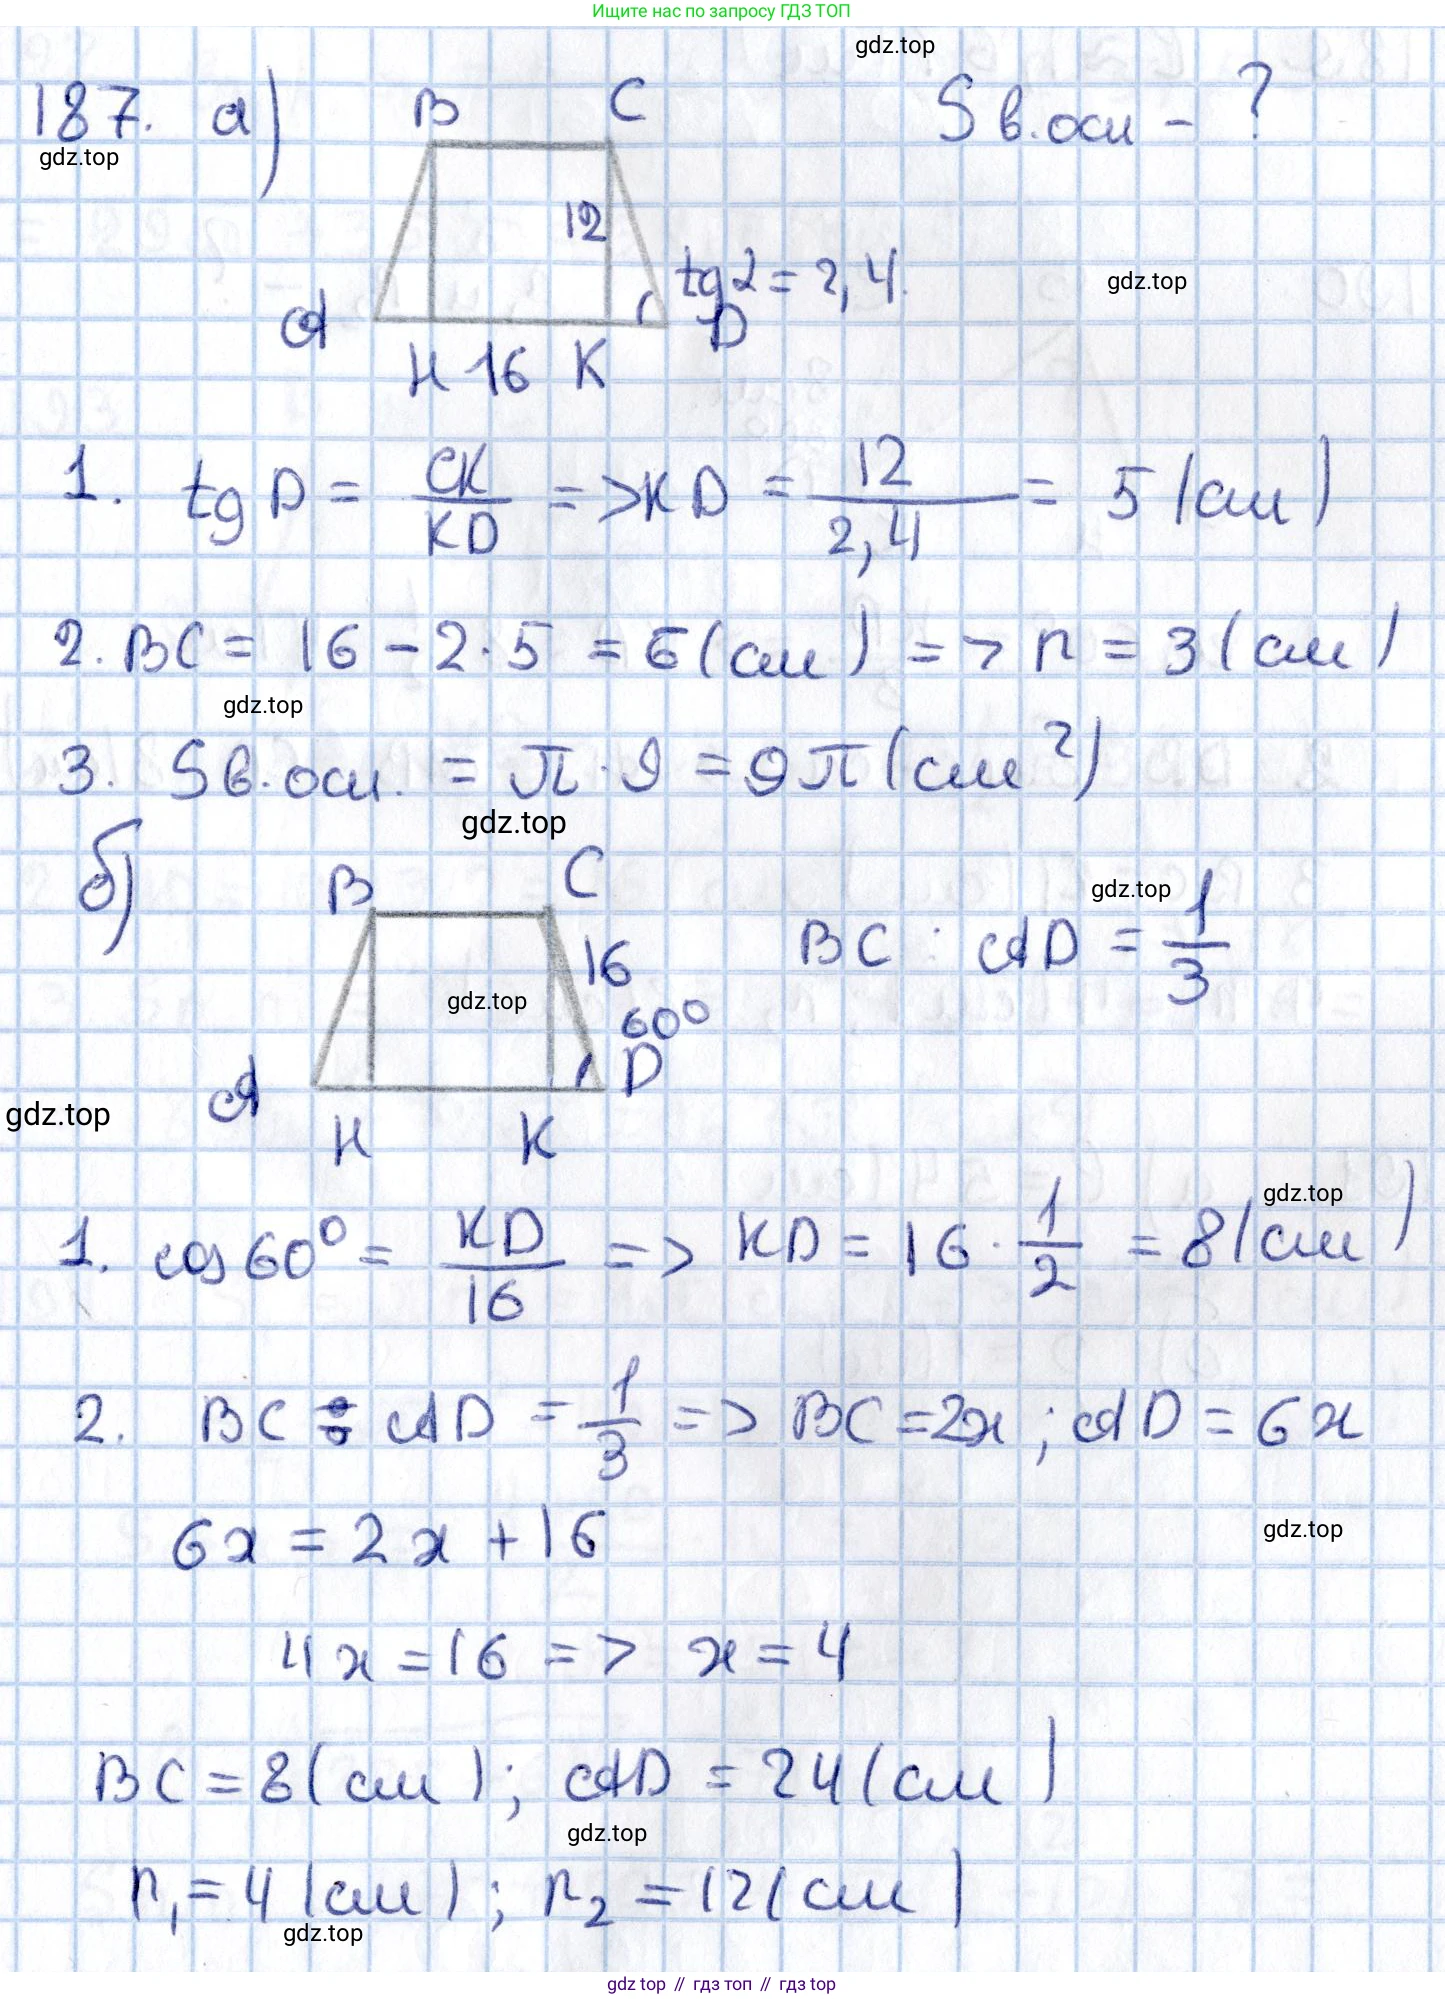 Ищите нас по запросу ГДЗ ТОП
gdz.top
187. а) B C Sв.осн - ?
gdz.top
12
tg2 = 2,4.
gdz.top
A D
H 16 K
1. tg D = CK/KD => KD = 12/2,4 = 5 (см)
2. BC = 16 - 2·5 = 6 (см) => r = 3 (см)
gdz.top
3. Sв.осн. = π·9 = 9π (см²)
gdz.top
б) B C
gdz.top
BC : AD = 1/3
16
gdz.top
60°
A D
gdz.top
H K
gdz.top
1. cos60° = KD/16 => KD = 16·1/2 = 8 (см)
2. BC : AD = 1/3 => BC = 2x; AD = 6x
6x = 2x + 16
gdz.top
4x = 16 => x = 4
BC = 8 (см); AD = 24 (см)
gdz.top
r₁ = 4 (см); r₂ = 12 (см)
gdz.top
gdz top // гдз топ // гдз top